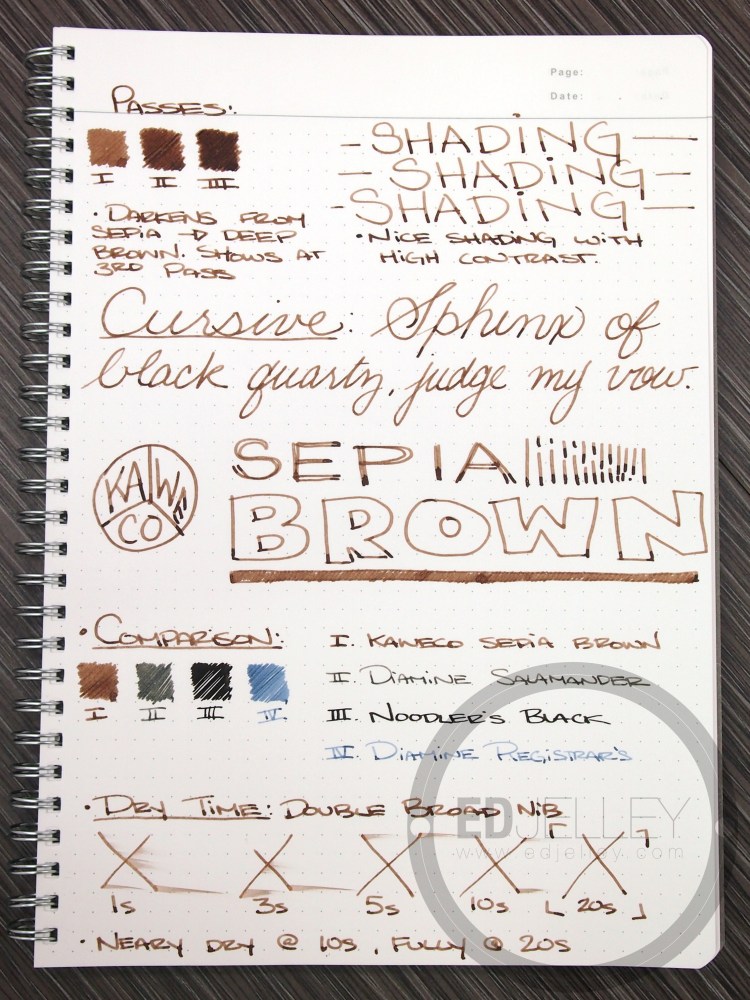 Page:
Date:
Passes:
I II III
· Darkens from
sepia → deep
brown. Shows at
3rd pass
- SHADING -
- SHADING -
- SHADING -
· Nice shading with
high contrast.
Cursive: Sphinx of
black quartz, judge my vow.
KAWE
CO
SEPIA
BROWN
· Comparison:
I II III IV
I. Kaweco Sepia Brown
II. Diamine Salamander
III. Noodler's Black
IV. Diamine Registrar's
· Dry Time: Double Broad Nib
1s 3s 5s 10s 20s
· Neary dry @ 10s, fully @ 20s
EDJELLEY
www.edjelley.com